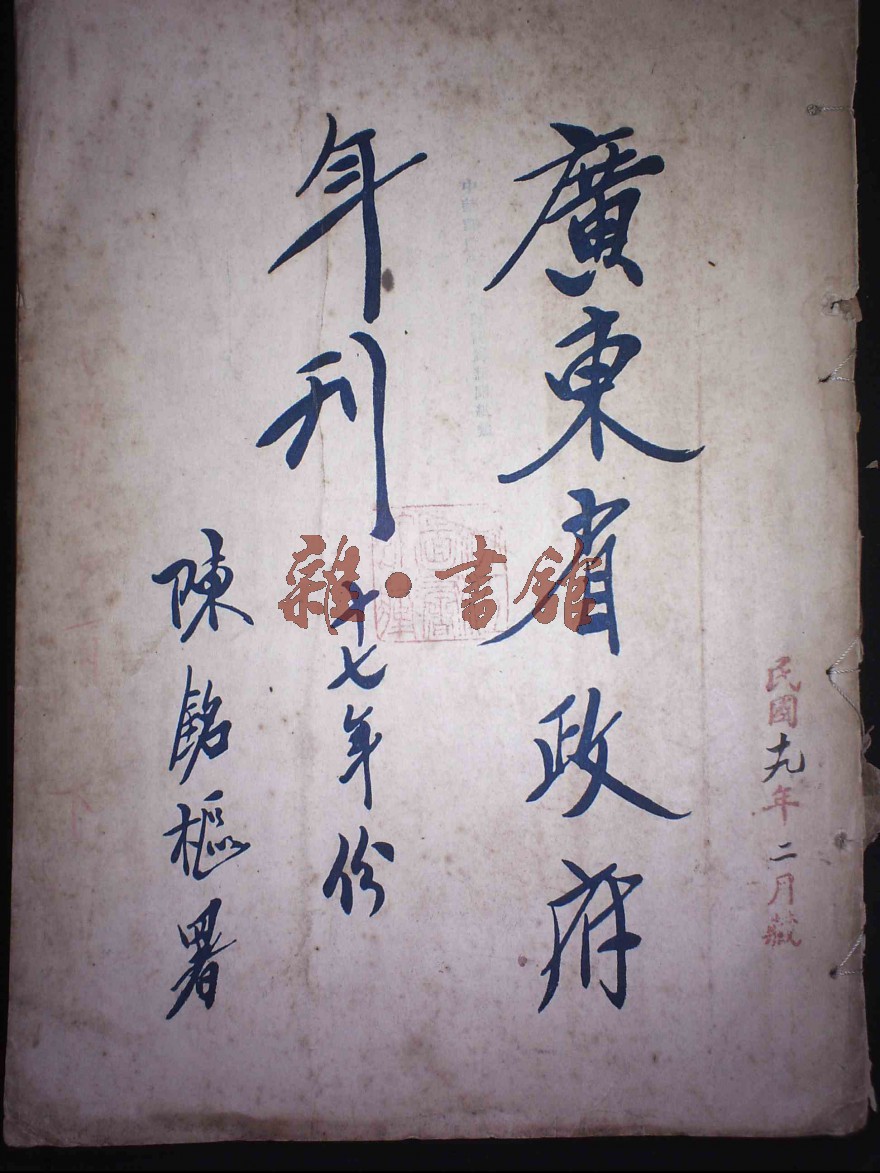 民國十九年二月藏
廣東省政府
年刊
十七年份
陳銘樞署
雜·書館